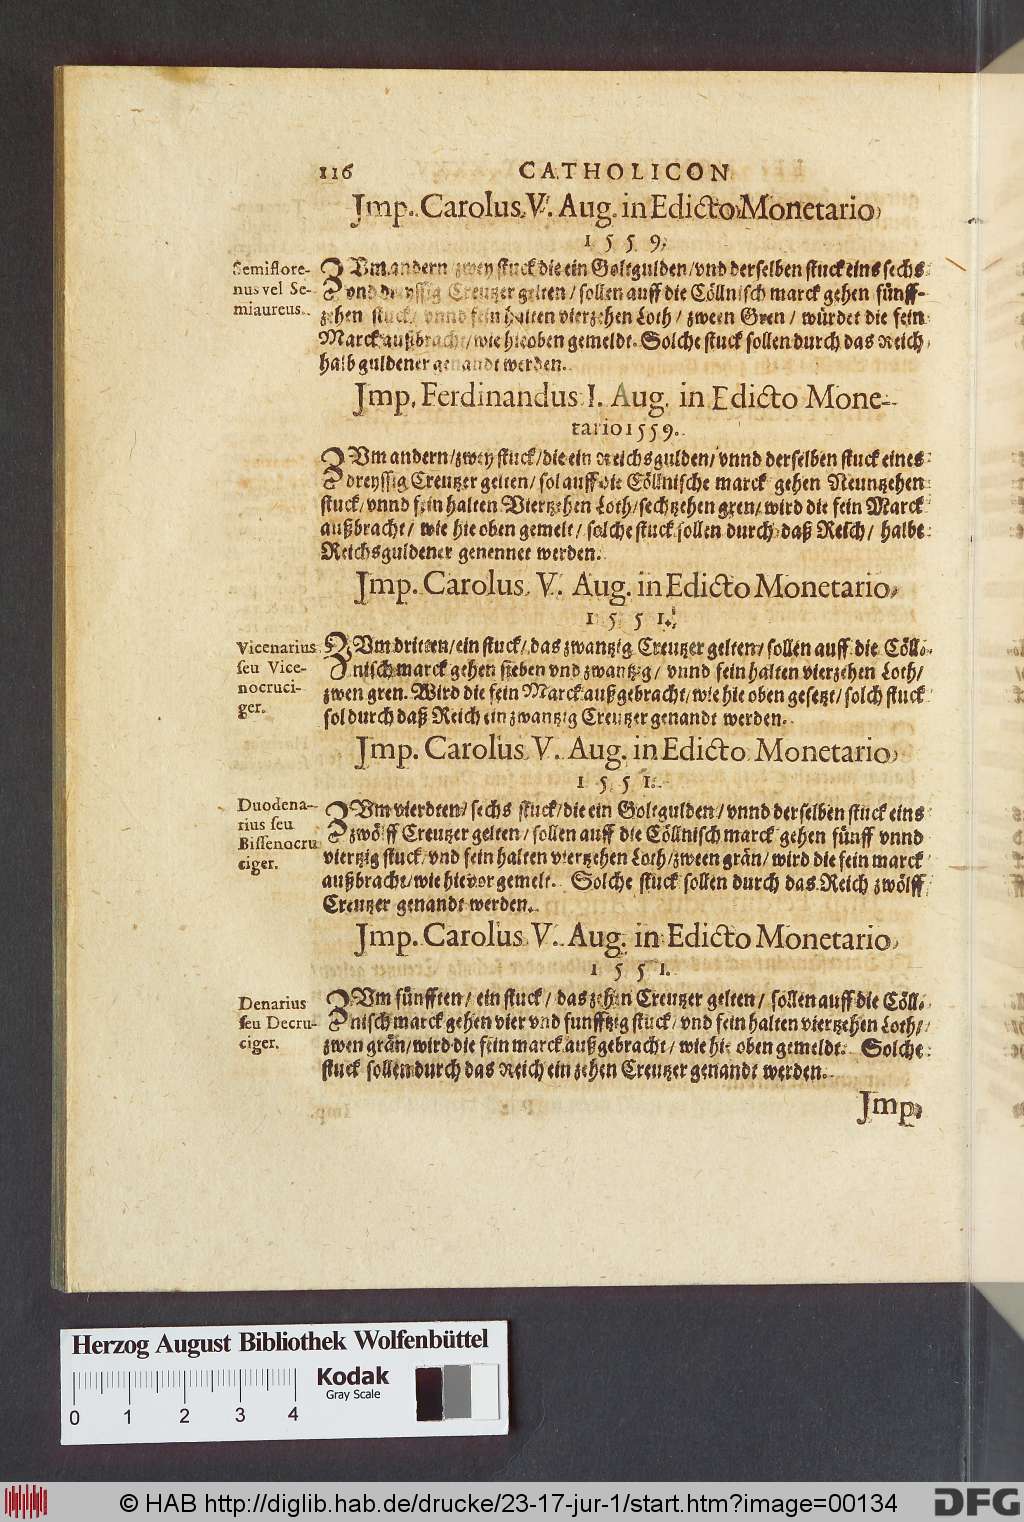 116 CATHOLICON
Imp. Carolus V. Aug. in Edicto Monetario
1559.
Semiflore-
nus vel Se-
miaureus.
ZUm andern zwey stuck die ein Goltgulden/vnd derselben stuck eins sechs
vnd dreyssig Creutzer gelten/ sollen auff die Cöllnisch marck gehen fünff-
zehen stuck/ vnnd fein halten vierzehen Loth/ zween Gren/ würdet die fein
Marck außbracht/ wie hieoben gemeldt. Solche stuck sollen durch das Reich
halb guldener genandt werden.
Imp. Ferdinandus I. Aug. in Edicto Mone-
tario 1559.
ZUm andern/zwey stuck/die ein Reichsgulden/vnnd derselben stuck eines
dreyssig Creutzer gelten/ sol auff die Cöllnische marck gehen Neuntzehen
stuck/vnnd fein halten Viertzehen Loth/sechtzehen gren/wird die fein Marck
außbracht/ wie hie oben gemelt/ solche stuck sollen durch daß Reich/ halbe
Reichsguldener genennet werden.
Imp. Carolus V. Aug. in Edicto Monetario,
1551.
Vicenarius
seu Vice-
nocruci-
ger.
ZUm dritten/ein stuck/das zwantzig Creutzer gelten/ sollen auff die Cöll-
nisch marck gehen sieben vnd zwantzig/ vnnd fein halten vierzehen Loth/
zwen gren. Wird die fein Marck außgebracht/wie hie oben gesetzt/ solch stuck
sol durch daß Reich ein zwantzig Creutzer genandt werden.
Imp. Carolus V. Aug. in Edicto Monetario,
1551.
Duodena-
rius seu
Bissenocru
ciger.
ZUm vierdten/ sechs stuck/die ein Goltgulden/ vnnd derselben stuck eins
zwölff Creutzer gelten/ sollen auff die Cöllnisch marck gehen fünff vnnd
viertzig stuck/ vnd fein halten viertzehen Loth/zween grän/ wird die fein marck
außbracht/wie hievor gemelt. Solche stuck sollen durch das Reich zwölff
Creutzer genandt werden.
Imp. Carolus V. Aug. in Edicto Monetario,
1551.
Denarius
seu Decru-
ciger.
ZUm fünfften/ ein stuck/ das zehen Creutzer gelten/ sollen auff die Cöll-
nisch marck gehen vier vnd funfftzig stuck/ vnd fein halten viertzehen Loth/
zwen grän/wird die fein marck außgebracht/ wie hie oben gemeldt. Solche
stuck sollen durch das Reich ein zehen Creutzer genandt werden.
Imp.
Herzog August Bibliothek Wolfenbüttel
Kodak
Gray Scale
0 1 2 3 4
© HAB http://diglib.hab.de/drucke/23-17-jur-1/start.htm?image=00134
DFG